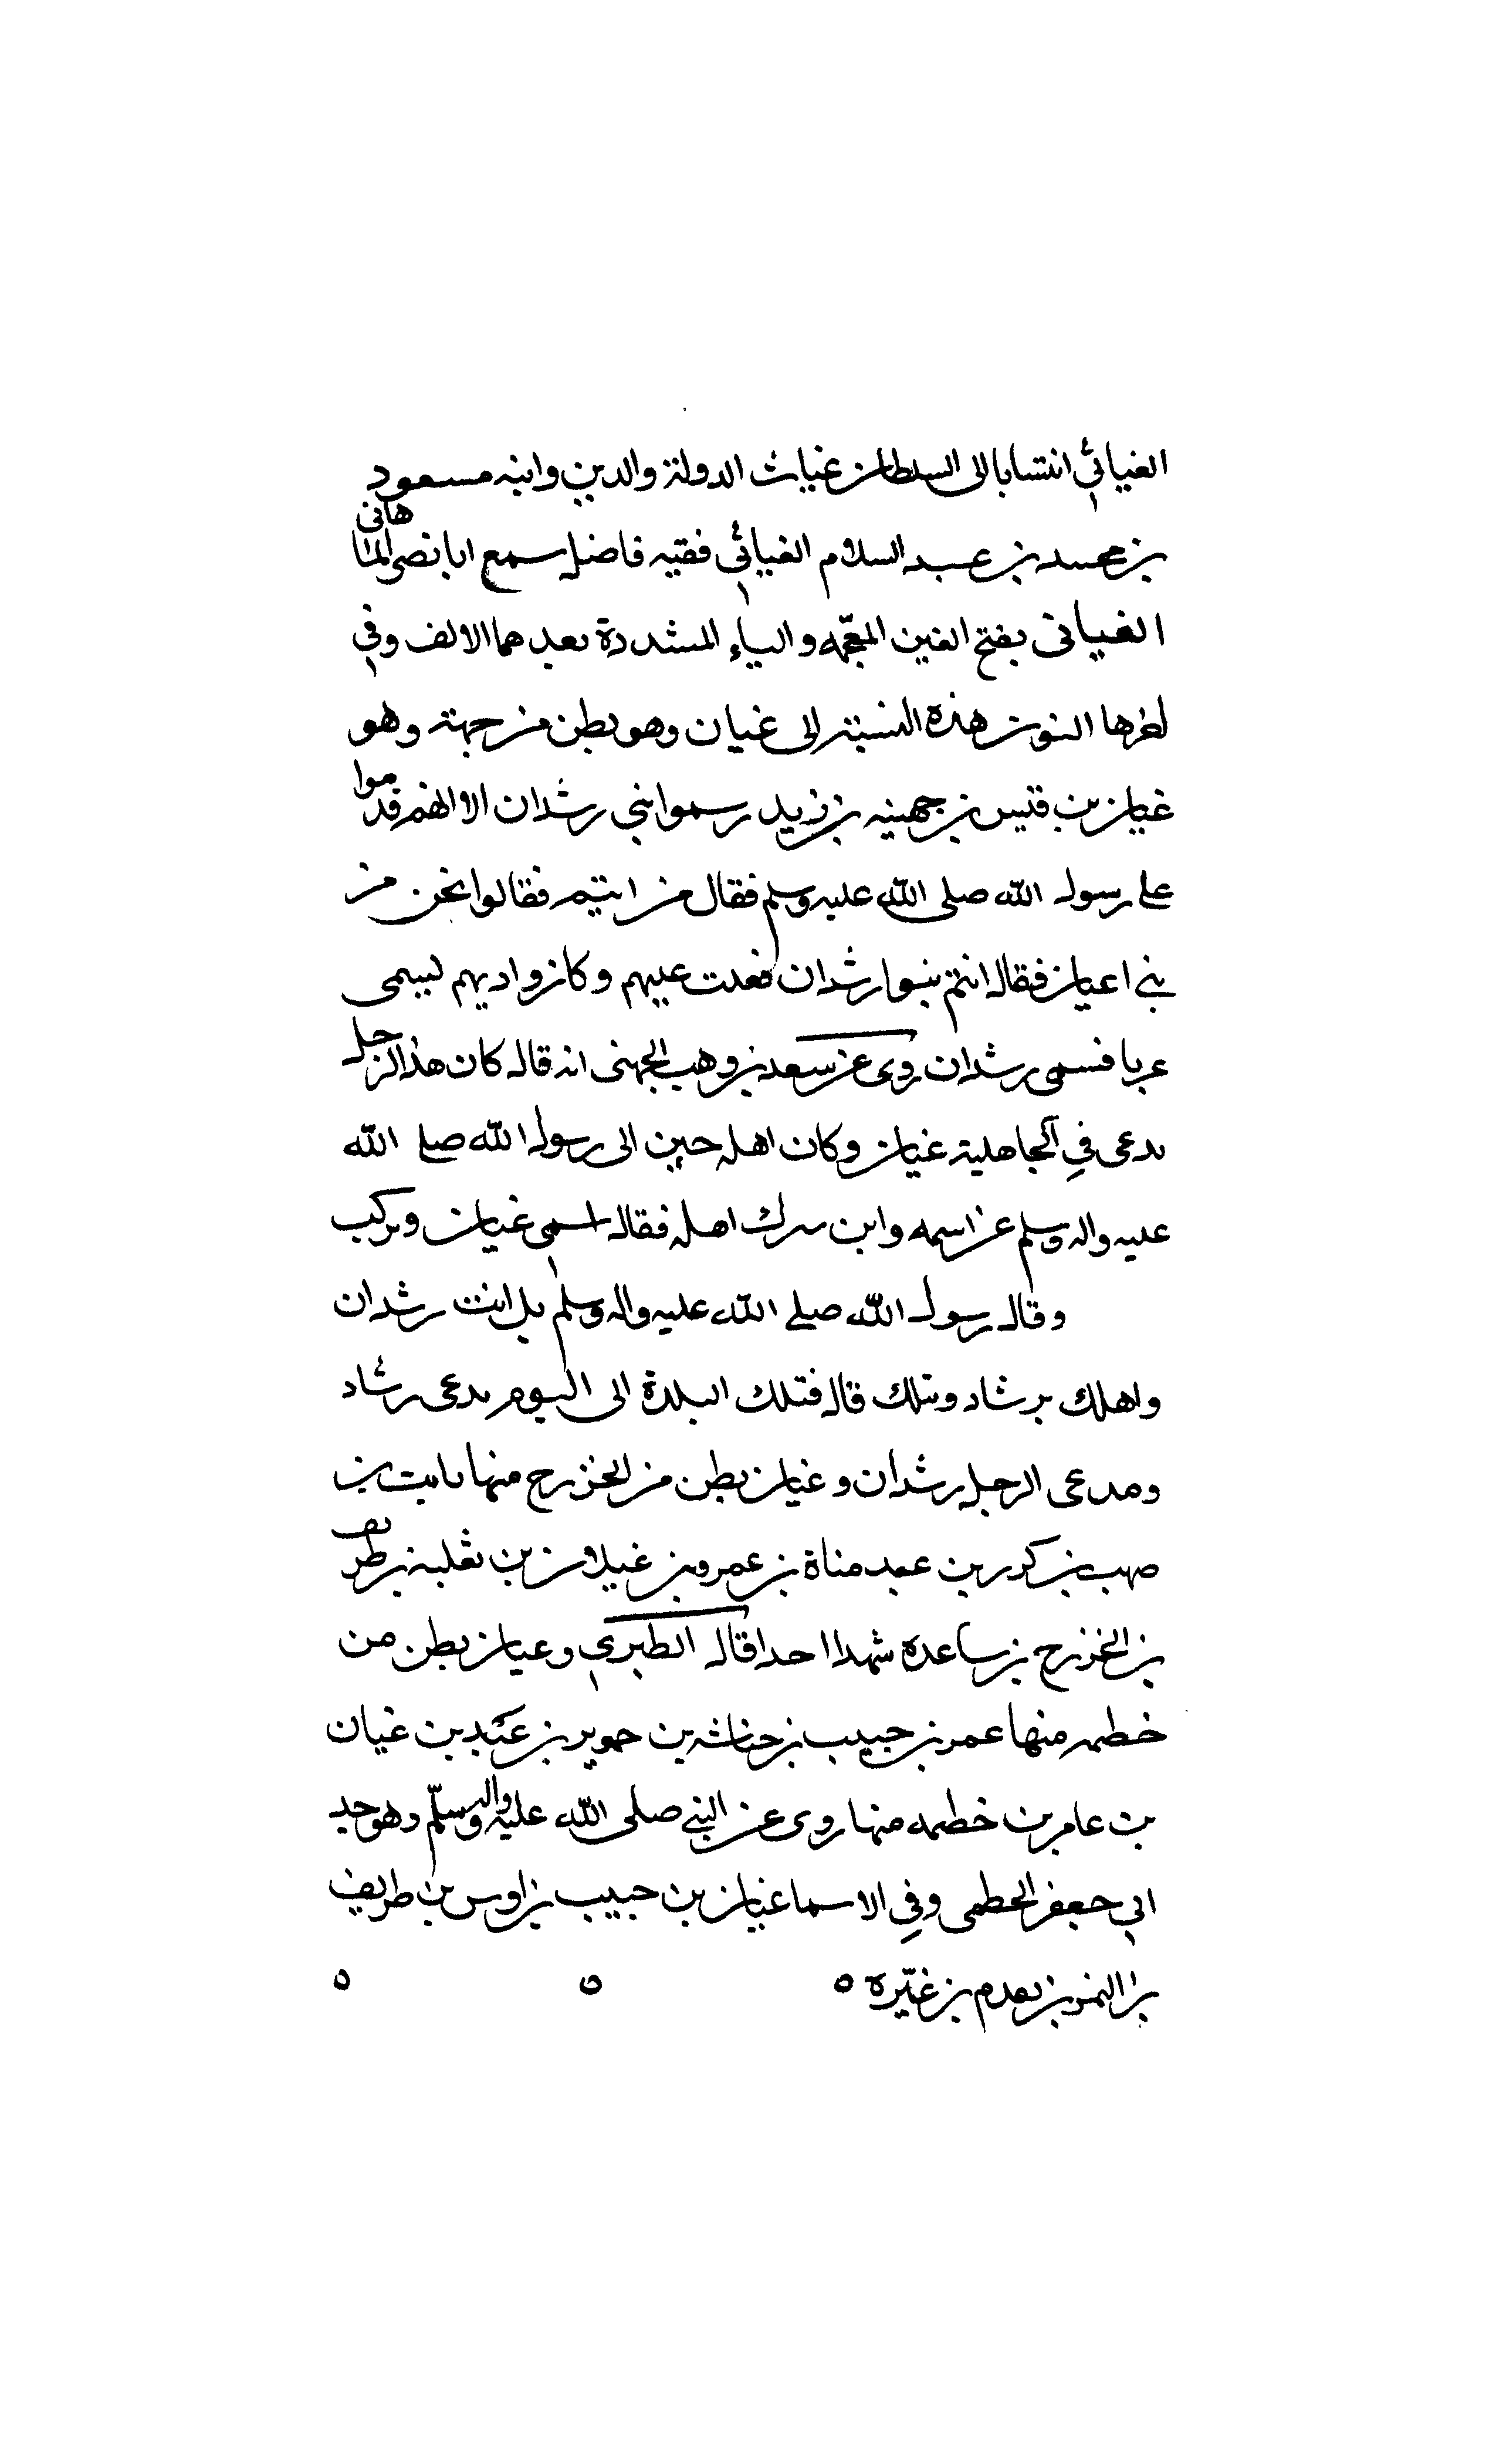 الغياثي انتسابا الى السلطان غياث الدولة والدين وابنه مسعود
بن محمد بن عبد السلام الغياثي فقيه فاضل سمع ابا نصر الماهاني
الغياني بفتح الغين المعجمه والياء المشددة بعدهما الالف وفي
اخرها النون هذه النسبة الى غيان وهو بطن من جهينة وهو
غيان بن قيس بن جهينه بن زيد وسموا بني رشدان الا الهم قدموا
على رسول الله صلى الله عليه وسلم فقال من انتم فقالوا نحن من
بني اعيان فقال انتم بنوا رشدان فعلت عليهم وكان واديهم ليسمى
عربا فسمى رشدان روى عن سعد بن وهب الجهني انه قال كان هذا الرجل
يدعى في الجاهلية غيان وكان اهله حين الى رسول الله صلى الله
عليه واله وسلم عن اسمه واين ترك اهله فقال اسمي غيان وتركت
وقال رسول الله صلى الله عليه واله وسلم بل انت رشدان
واهلك برشاد وتلك قال فتلك البلدة الى اليوم يدعى رشاد
ومدعى الرجل رشدان وغيان بطن من الخزرج منها ثابت بن
صهيب بن كرز بن عبد مناة بن عمرو بن غيلان بن ثعلبة بن طريف
بن الخزرج بن ساعده شهدا احدا قال الطبري وعيان بطن من
خطمه منها عمر بن حبيب بن حناشه بن حويبر بن عبيد بن غيان
بن عامر بن خطمه منها روى عن النبي صلى الله عليه واله وسلم وهو جد
ابي جعفر الحطمي وفي الاسما غيان بن حبيب بن اوس بن طريف
بن النمر بن يقدم بن غيره ه ه ه